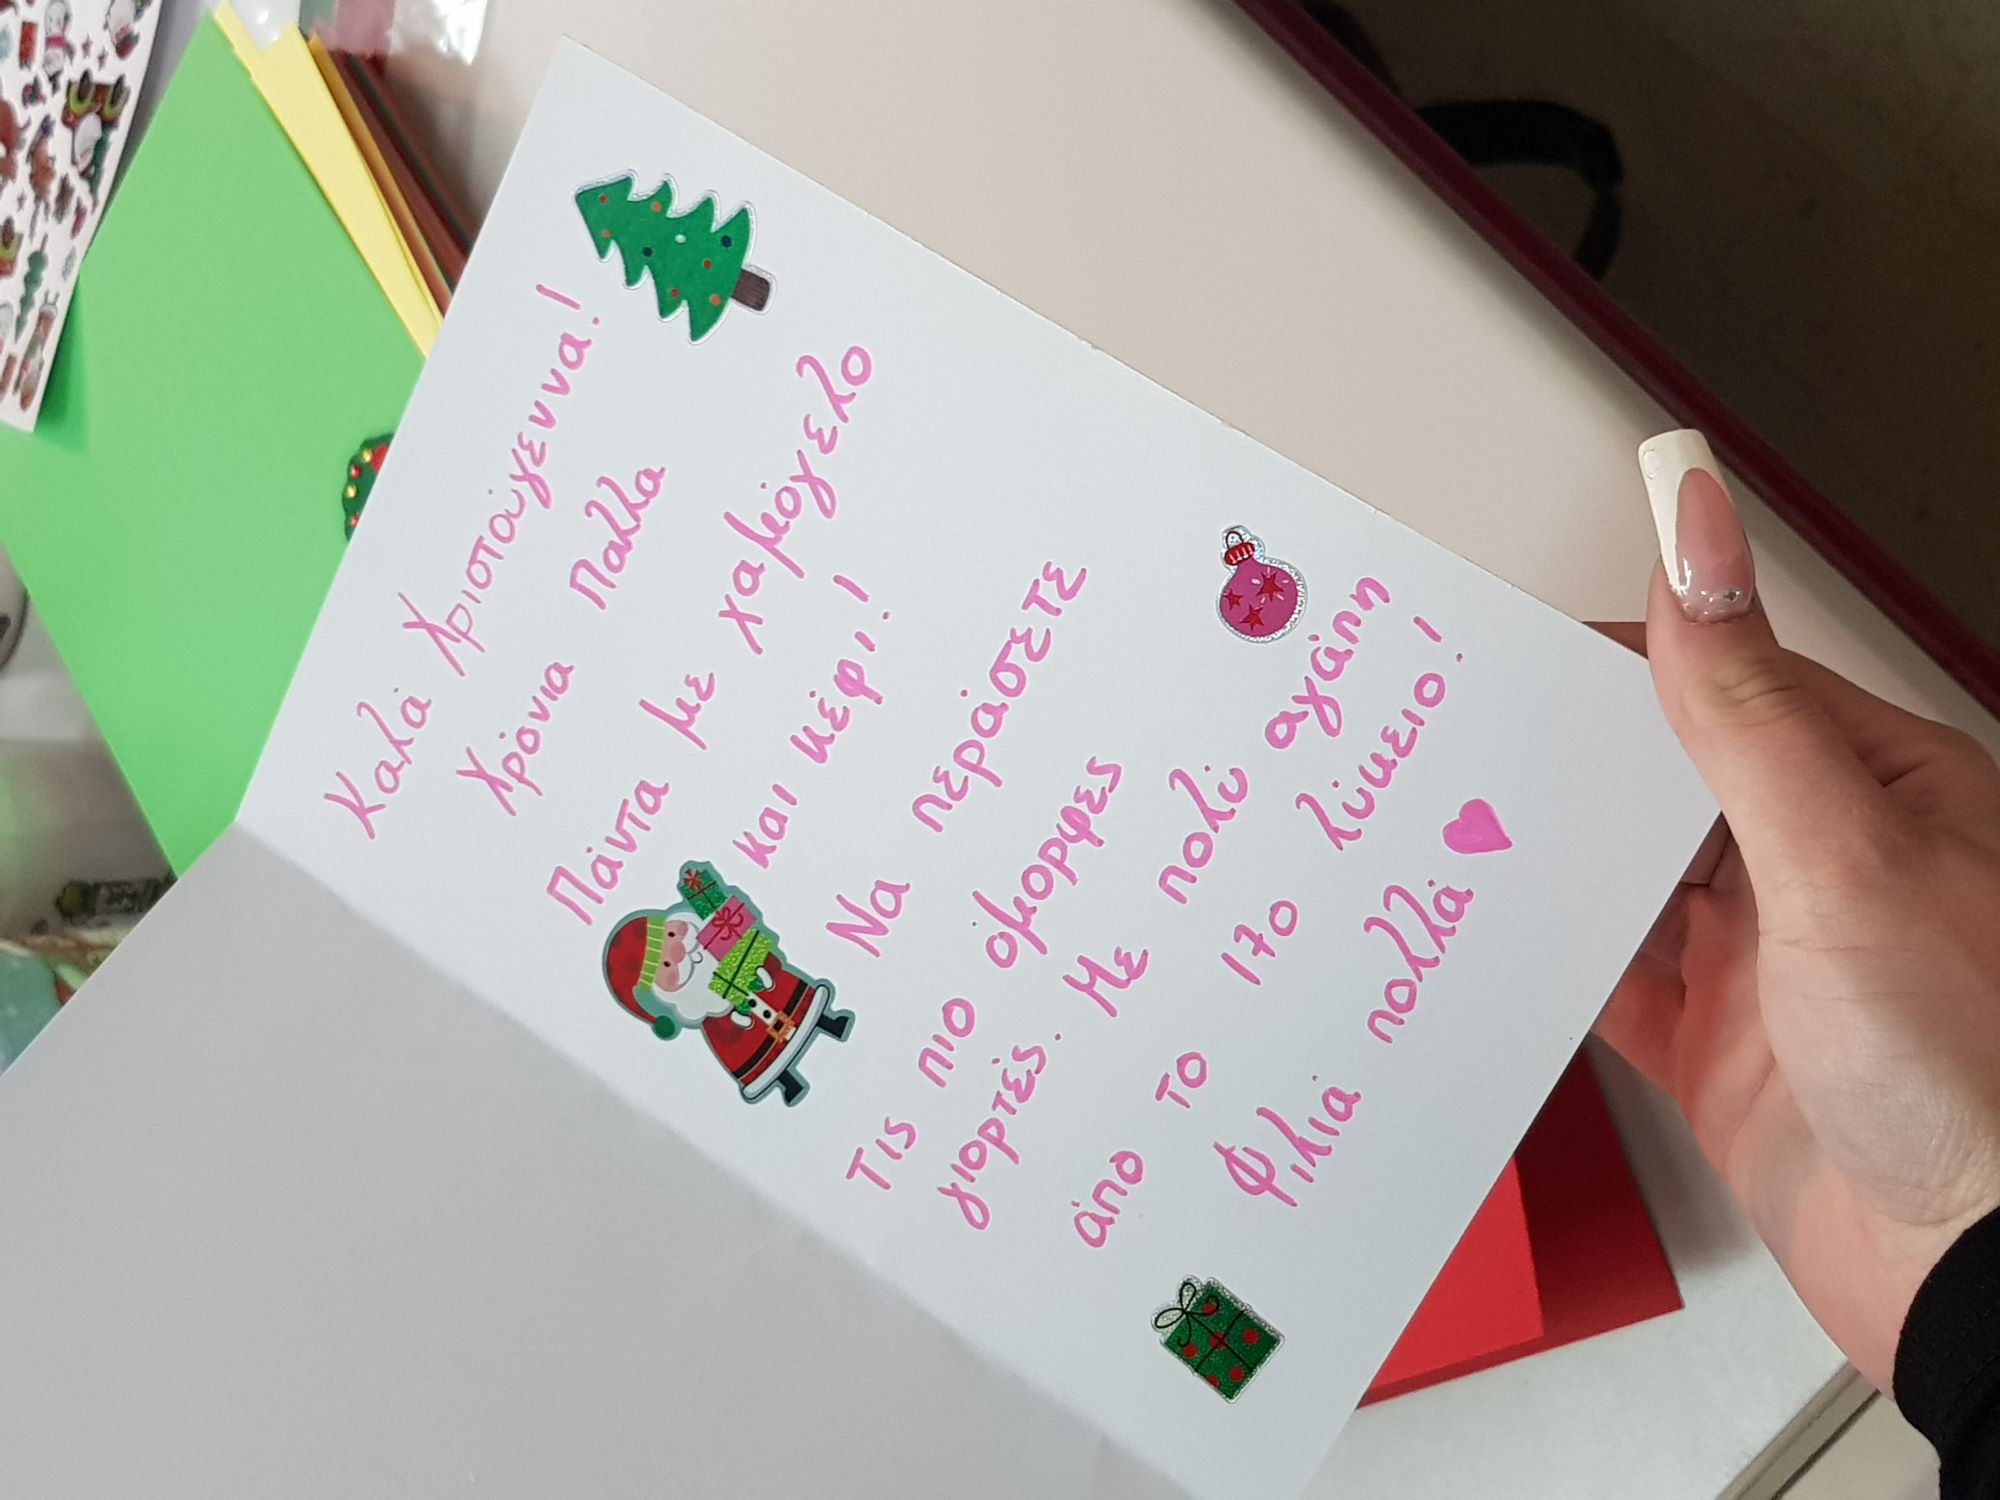 Καλά Χριστούγεννα!
Χρόνια Πολλα
Πάντα με χαμόγελο
και κέφι!
Να περάσετε
τις πιο όμορφες
γιορτές. Με πολύ αγάπη
άπο το 17ο λύκειο!
Φιλιά πολλά